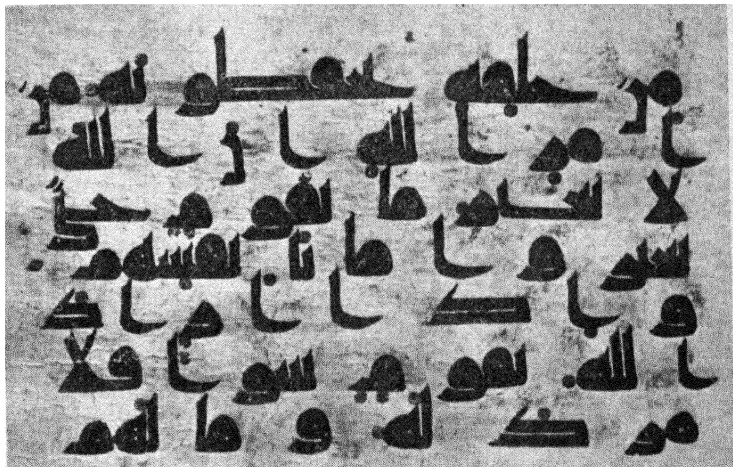 ومن خلفه يحفظونه من
امر الله ان الله
لا يغير ما بقوم حتى
يغيروا ما بانفسهم
واذا اراد
الله بقوم سوا فلا
مرد له وما لهم